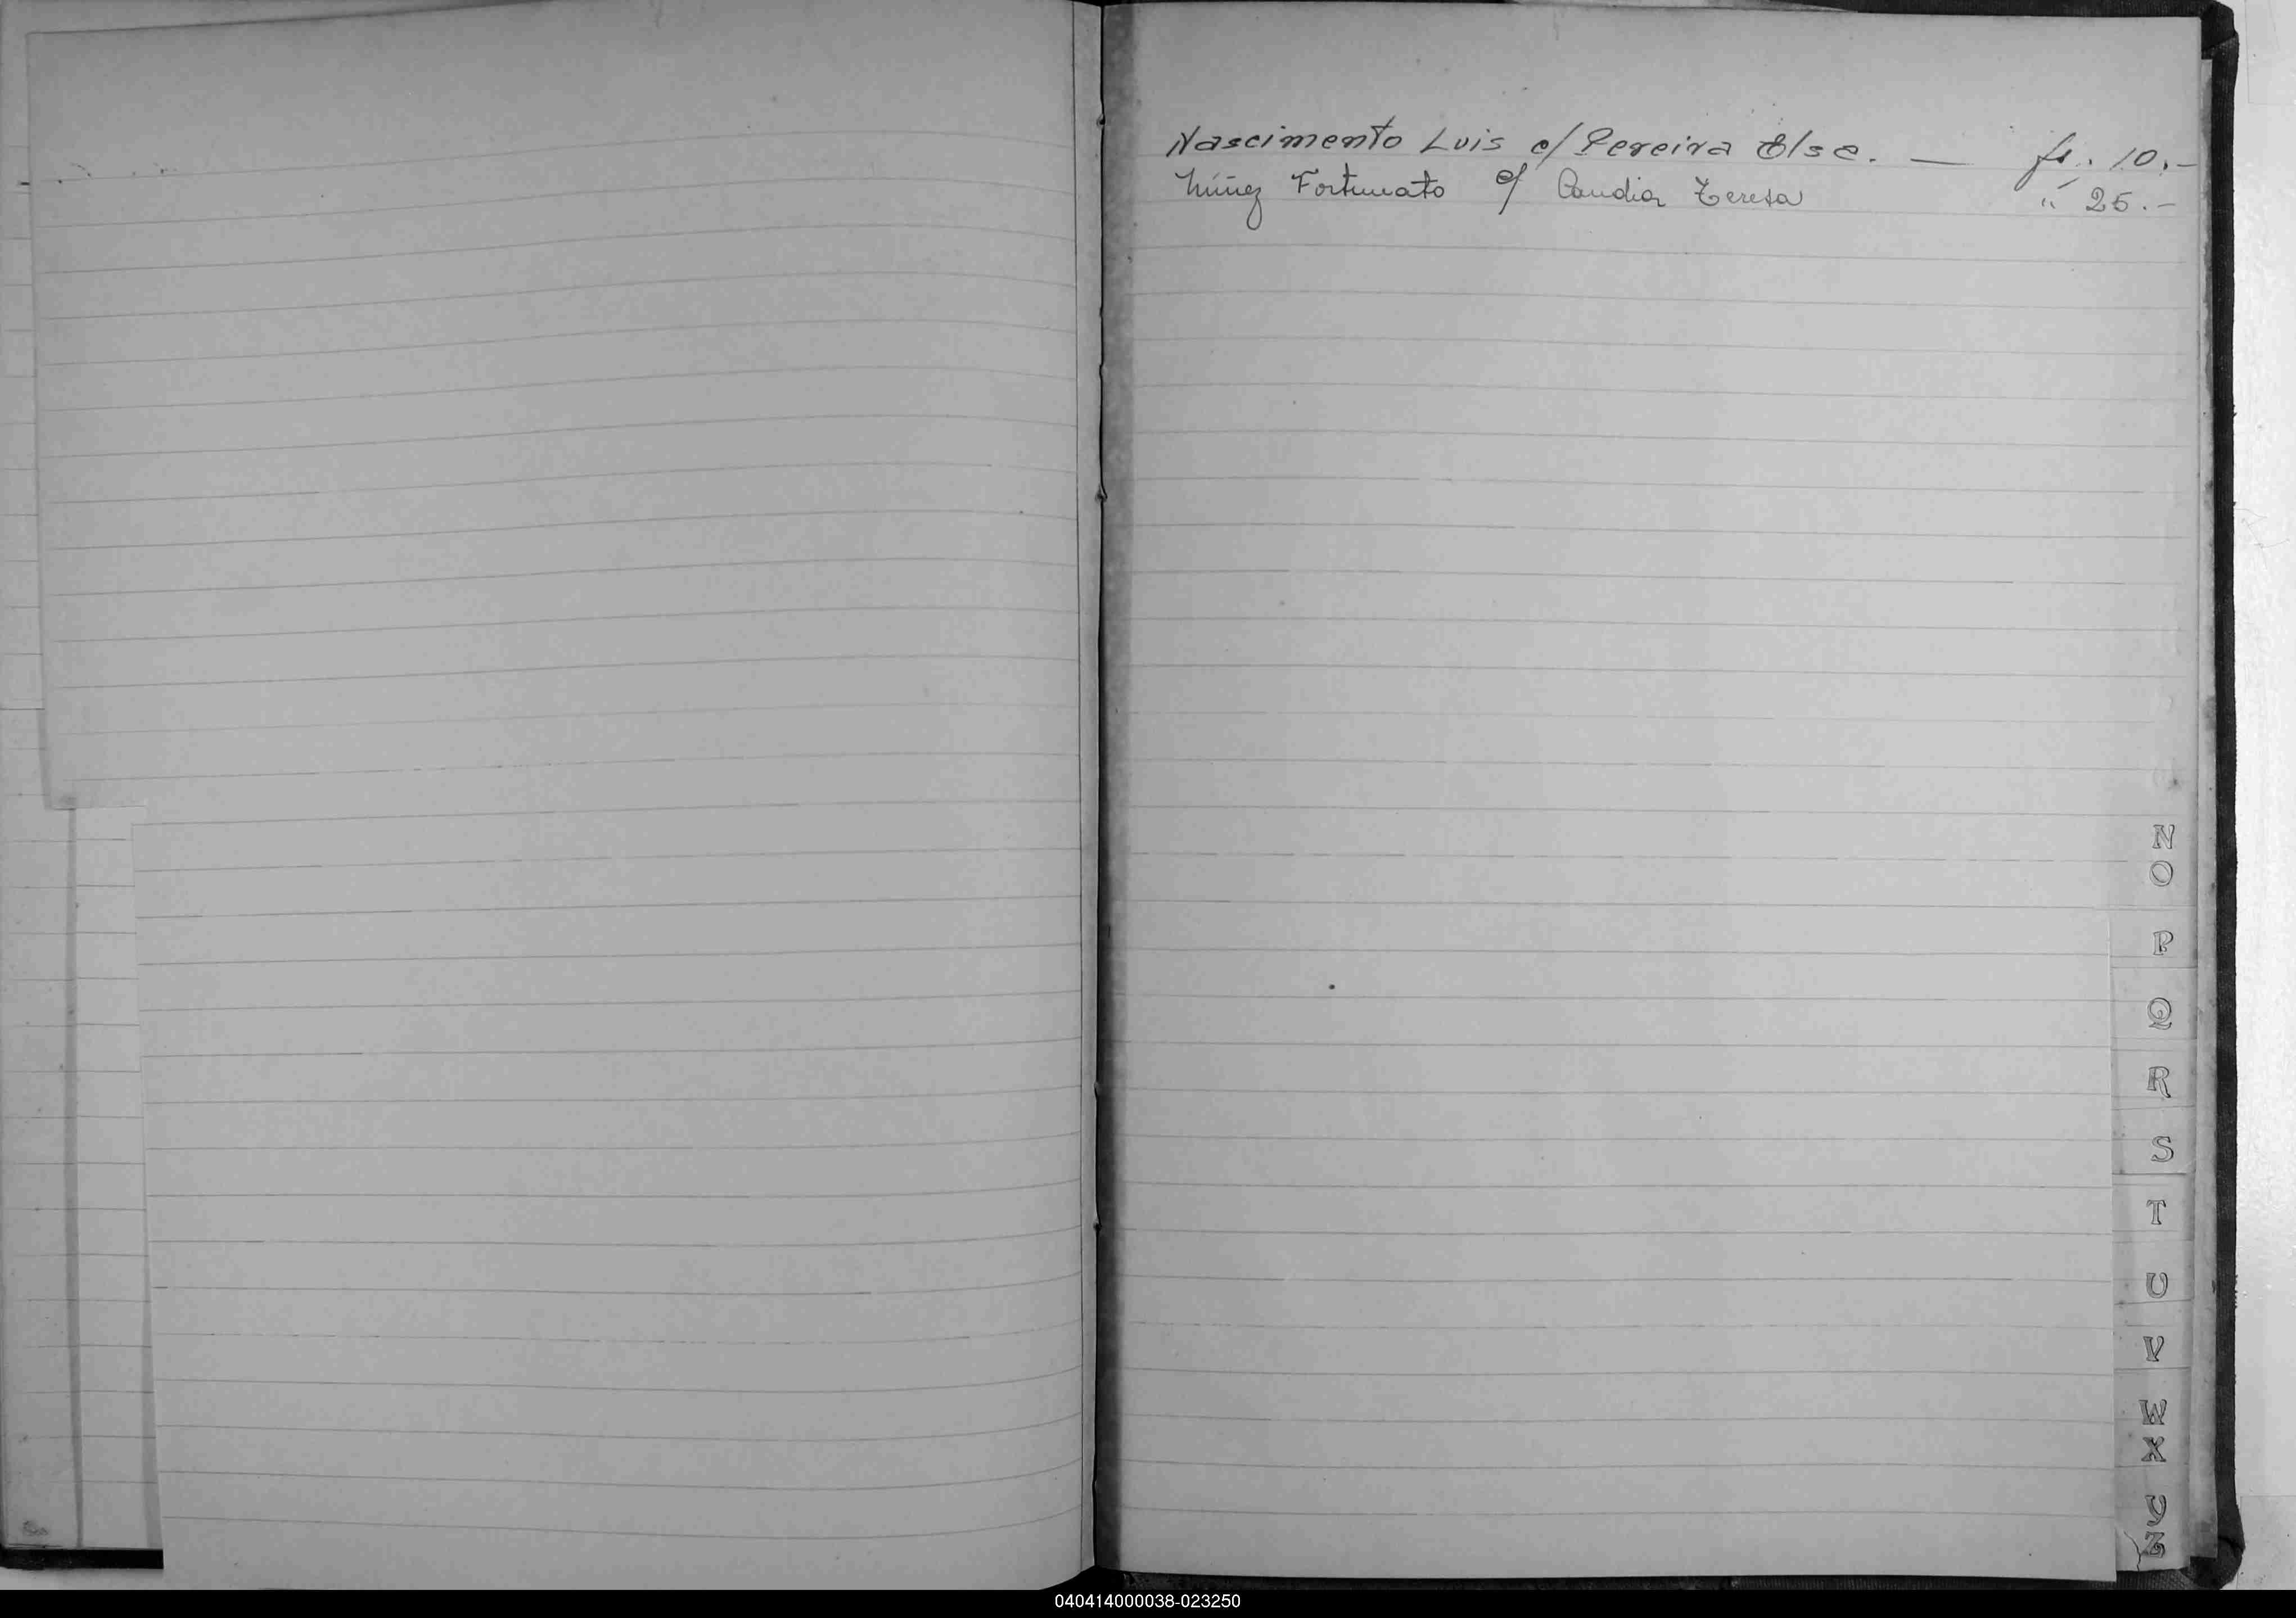 Nascimento Luis c/ Pereira Else. — fs. 10.-
Núñez Fortunato c/ Candia Teresa " 25.-
N
O
P
Q
R
S
T
U
V
W
X
Y
Z
040414000038-023250